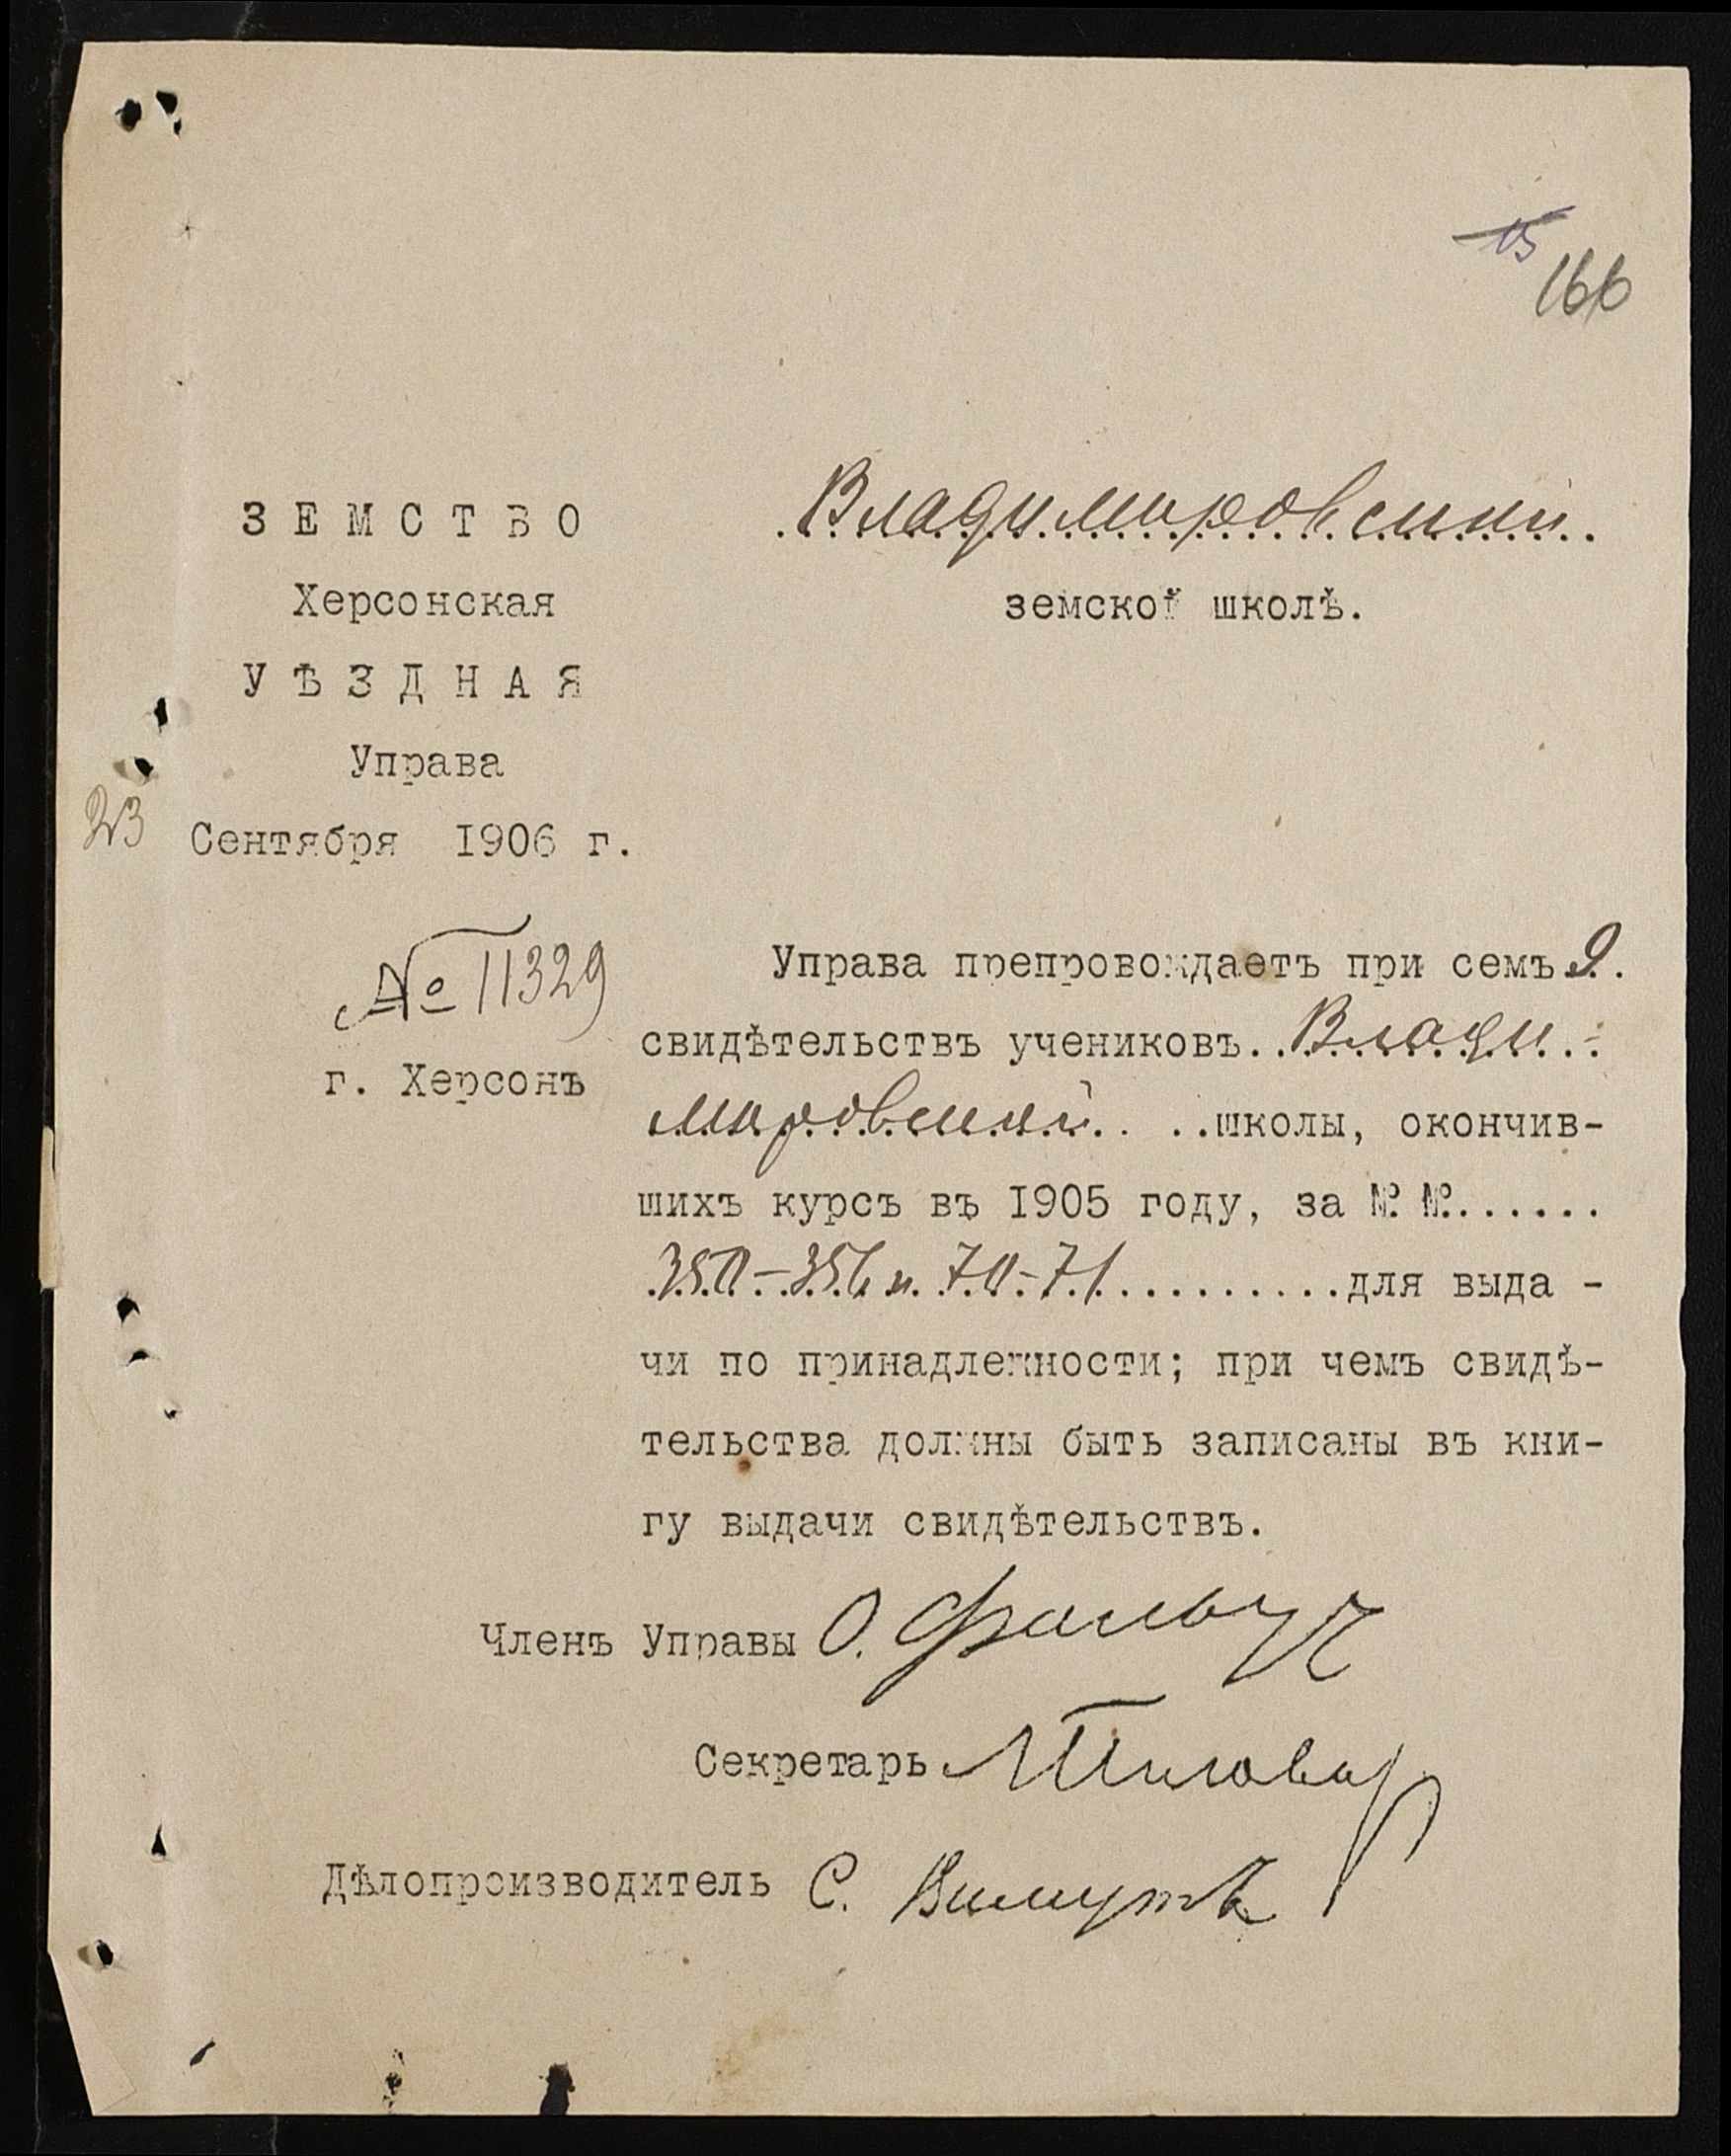 15
166
ЗЕМСТВО
Херсонская
УѢЗДНАЯ
Управа
23 Сентября 1906 г.
№ 11329
г. Херсонъ
.Владимировской.
земской школѣ.
Управа препровождаетъ при семъ 9.
свидѣтельствъ учениковъ..Влади-
мировской.. ..школы, окончив-
шихъ курсъ въ 1905 году, за №№......
350-356 и 70-71..........для выда -
чи по принадлежности; при чемъ свидѣ-
тельства должны быть записаны въ кни-
гу выдачи свидѣтельствъ.
Членъ Управы О.
Секретарь
Дѣлопроизводитель С.